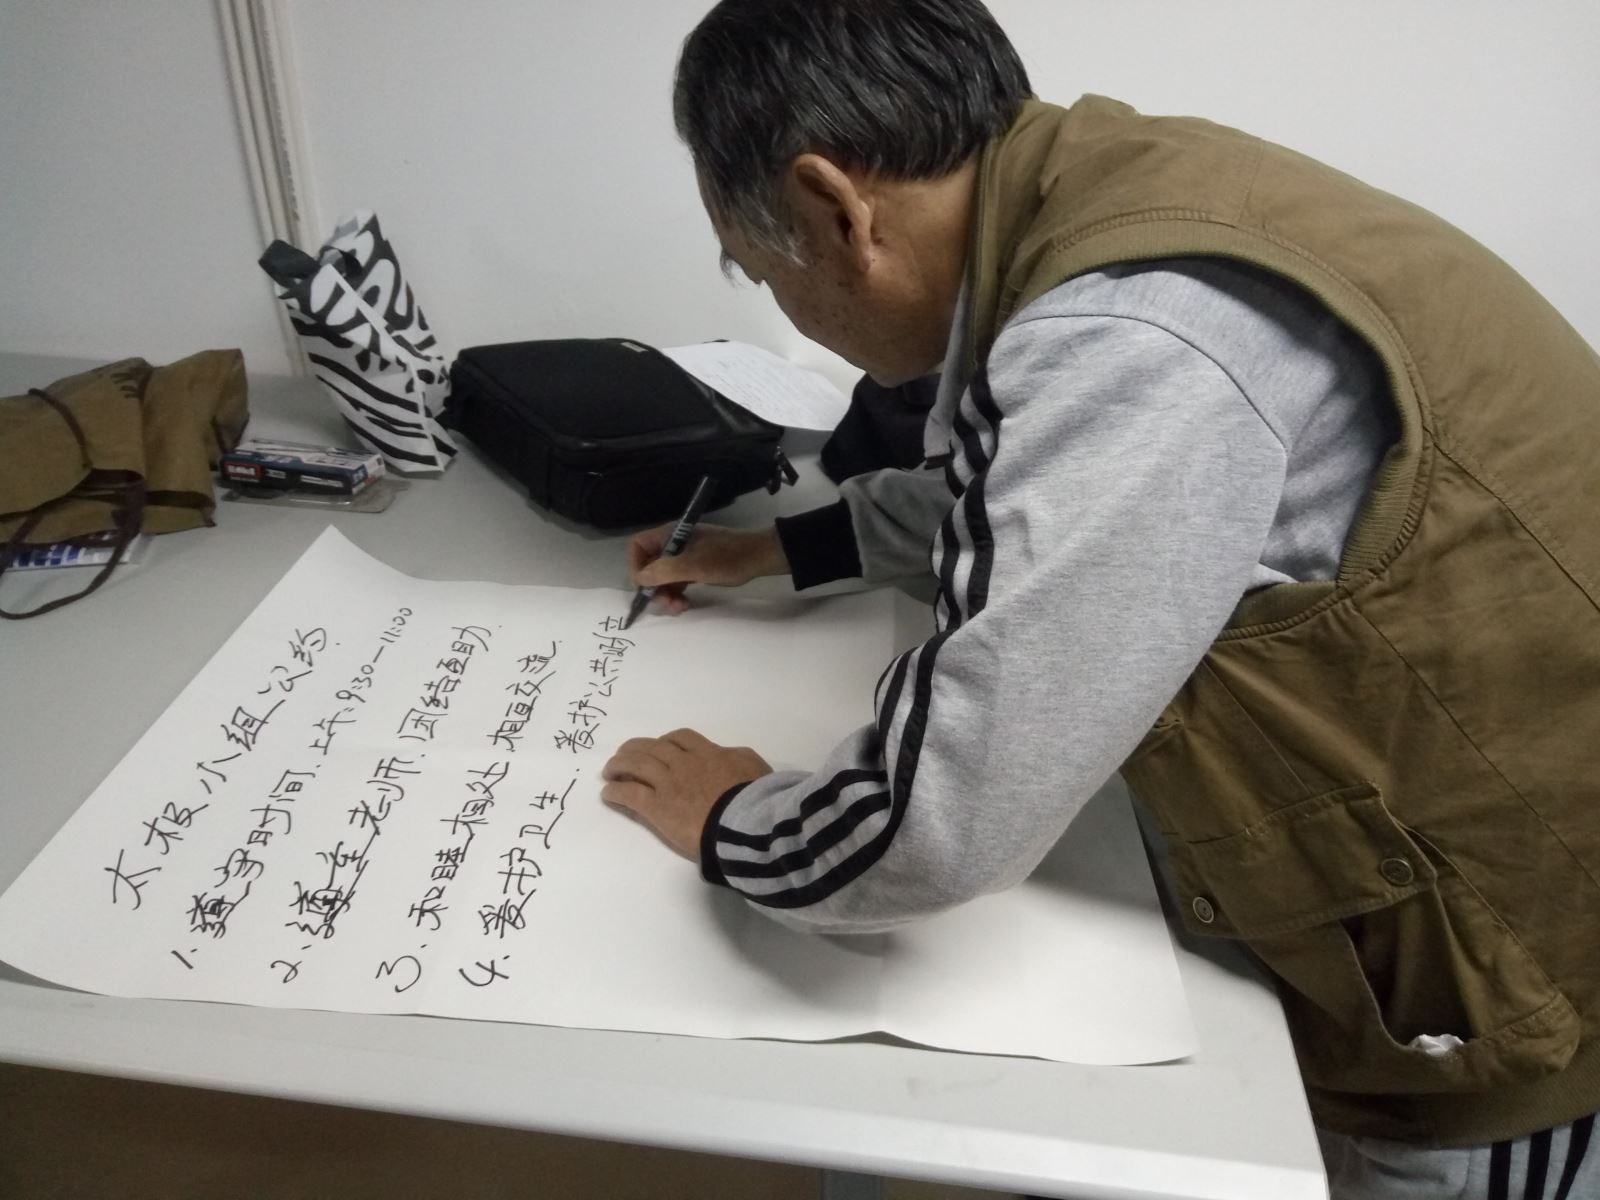 太极小组公约.
1. 遵守时间.上午:9:30—11:00
2. 尊重老师.团结互助.
3. 和睦相处.相互交流.
4. 爱护卫生.爱护公共场